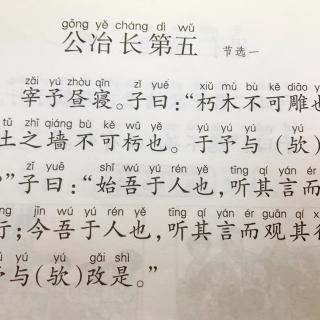 gōng yě cháng dì wǔ
公冶长第五 节选一
zǎi yú zhòu qǐn zǐ yuē xiǔ mù bù kě diāo
宰予昼寝。子曰：“朽木不可雕也
tǔ zhī qiáng bù kě wū yě yú yú yú yú
土之墙不可杇也。于予与(欤)
zǐ yuē shǐ wú yú rén yě tīng qí yán
？”子曰：“始吾于人也，听其言
jīn wú yú rén yě tīng qí yán ér guān qí
行；今吾于人也，听其言而观其
yú yú gǎi shì
与(欤)改是。”